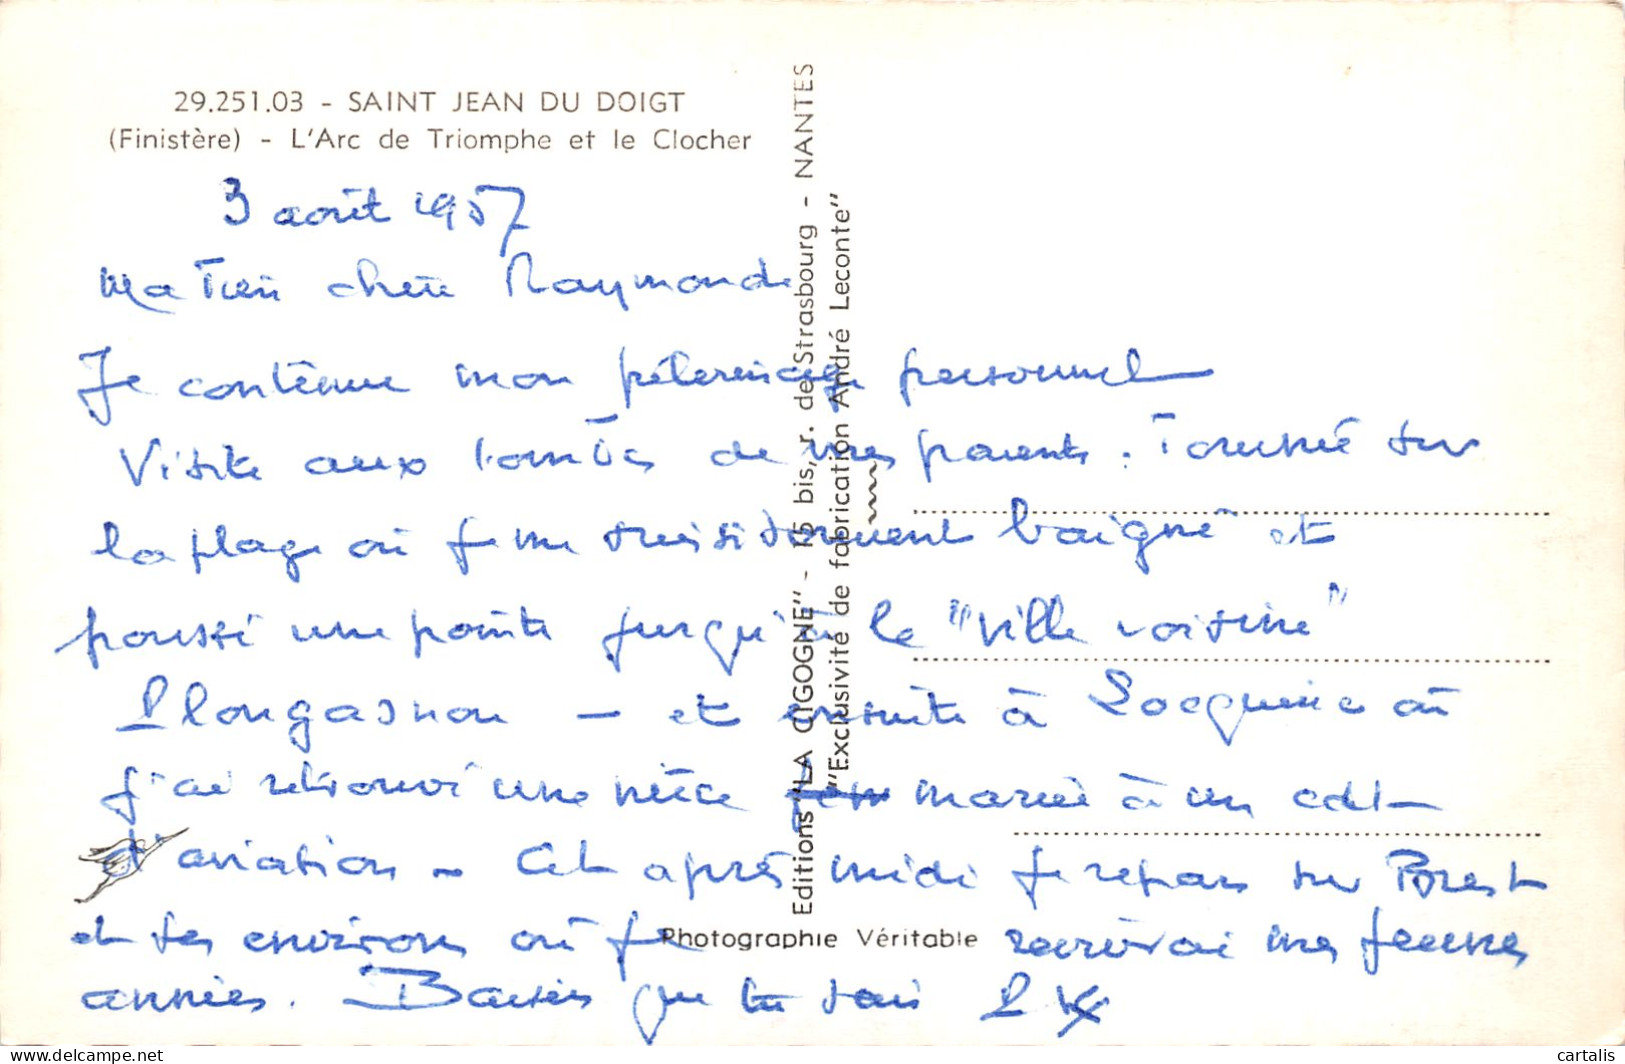 29.251.03 - SAINT JEAN DU DOIGT
(Finistère) - L'Arc de Triomphe et le Clocher
3 août 1957
Ma Très chère Raymonde
Je continue mon pélerinage personnel
Visite aux tombes de mes parents. Tournée sur
la plage où je me suis baigné et
poussé une pointe jusqu'à la "ville voisine"
Plougasnou - et ensuite à Locquirec où
j'ai retrouvé une nièce mariée à un cdt
d'aviation - Cet après midi je repars sur Brest
et ses environs où je revivrai mes jeunes
années. Baisers que tu sais
Editions "LA CIGOGNE" - 15 bis, r. de Strasbourg - NANTES
"Exclusivité de fabrication André Leconte"
Photographie Véritable
cartalis